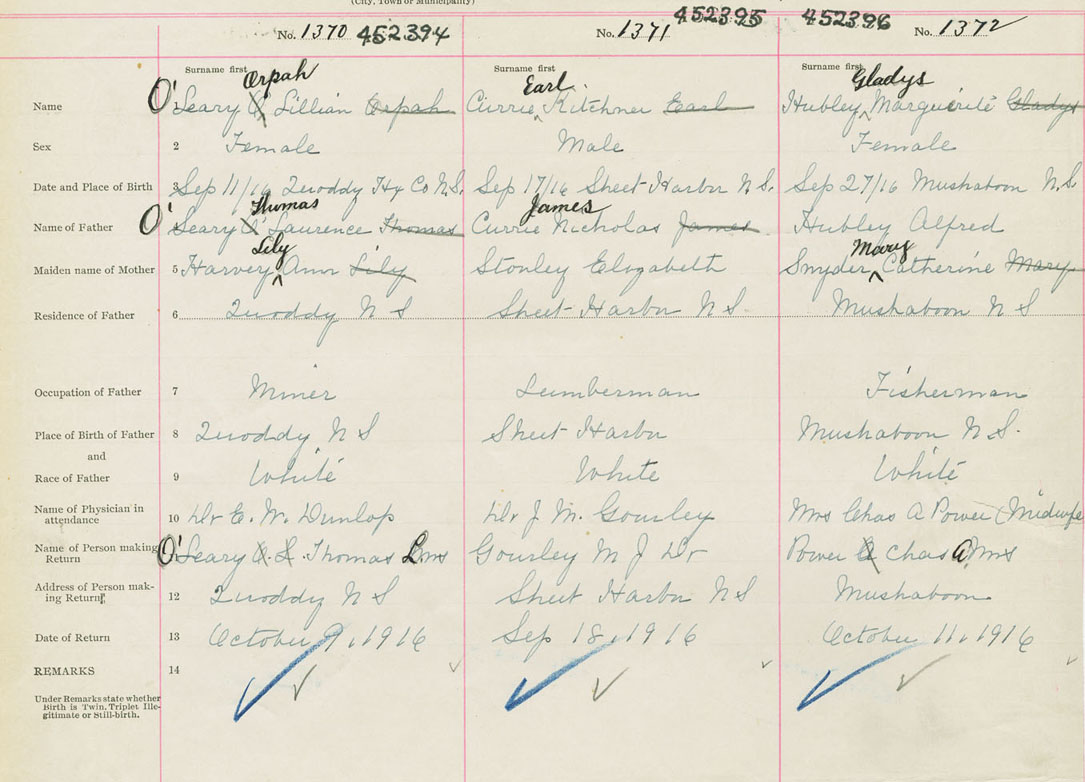 (City, Town or Municipality)
No. 1370 452394 No. 1371 452395 452396 No. 1372
Surname first Surname first Surname first
Orpah Earl Gladys
Name 1 O'Seary O' Lillian Orpah Currie, Kitchner Earl Hubley, Marguerite Gladys
Sex 2 Female Male Female
Date and Place of Birth 3 Sep 11/16 Quoddy Hx Co N.S. Sep 17/16 Sheet Harbor N S. Sep 27/16 Mushaboon N.S.
Thomas James
Name of Father 4 O'Seary O' Laurence Thomas Currie Nicholas James Hubley Alfred
Lily Mary
Maiden name of Mother 5 Harvey Ann Lily Stonley Elizabeth Snyder, Catherine Mary
Residence of Father 6 Quoddy N S Sheet Harbor N S. Mushaboon N S
Occupation of Father 7 Miner Lumberman Fisherman
Place of Birth of Father 8 Quoddy N S Sheet Harbor Mushaboon N.S.
and
Race of Father 9 White White White
Name of Physician in
attendance 10 Dr E. W. Dunlop Dr J. M. Gourley Mrs Chas A Power (Midwife
Name of Person making
Return 11 O'Seary O. L. Thomas L Mrs Gourley M J Dr Power A Chas A Mrs
Address of Person mak-
ing Return 12 Quoddy N S Sheet Harbor N S Mushaboon
Date of Return 13 October 9, 1916 Sep 18, 1916 October 11, 1916
REMARKS 14
Under Remarks state whether
Birth is Twin, Triplet Ille-
gitimate or Still-birth.